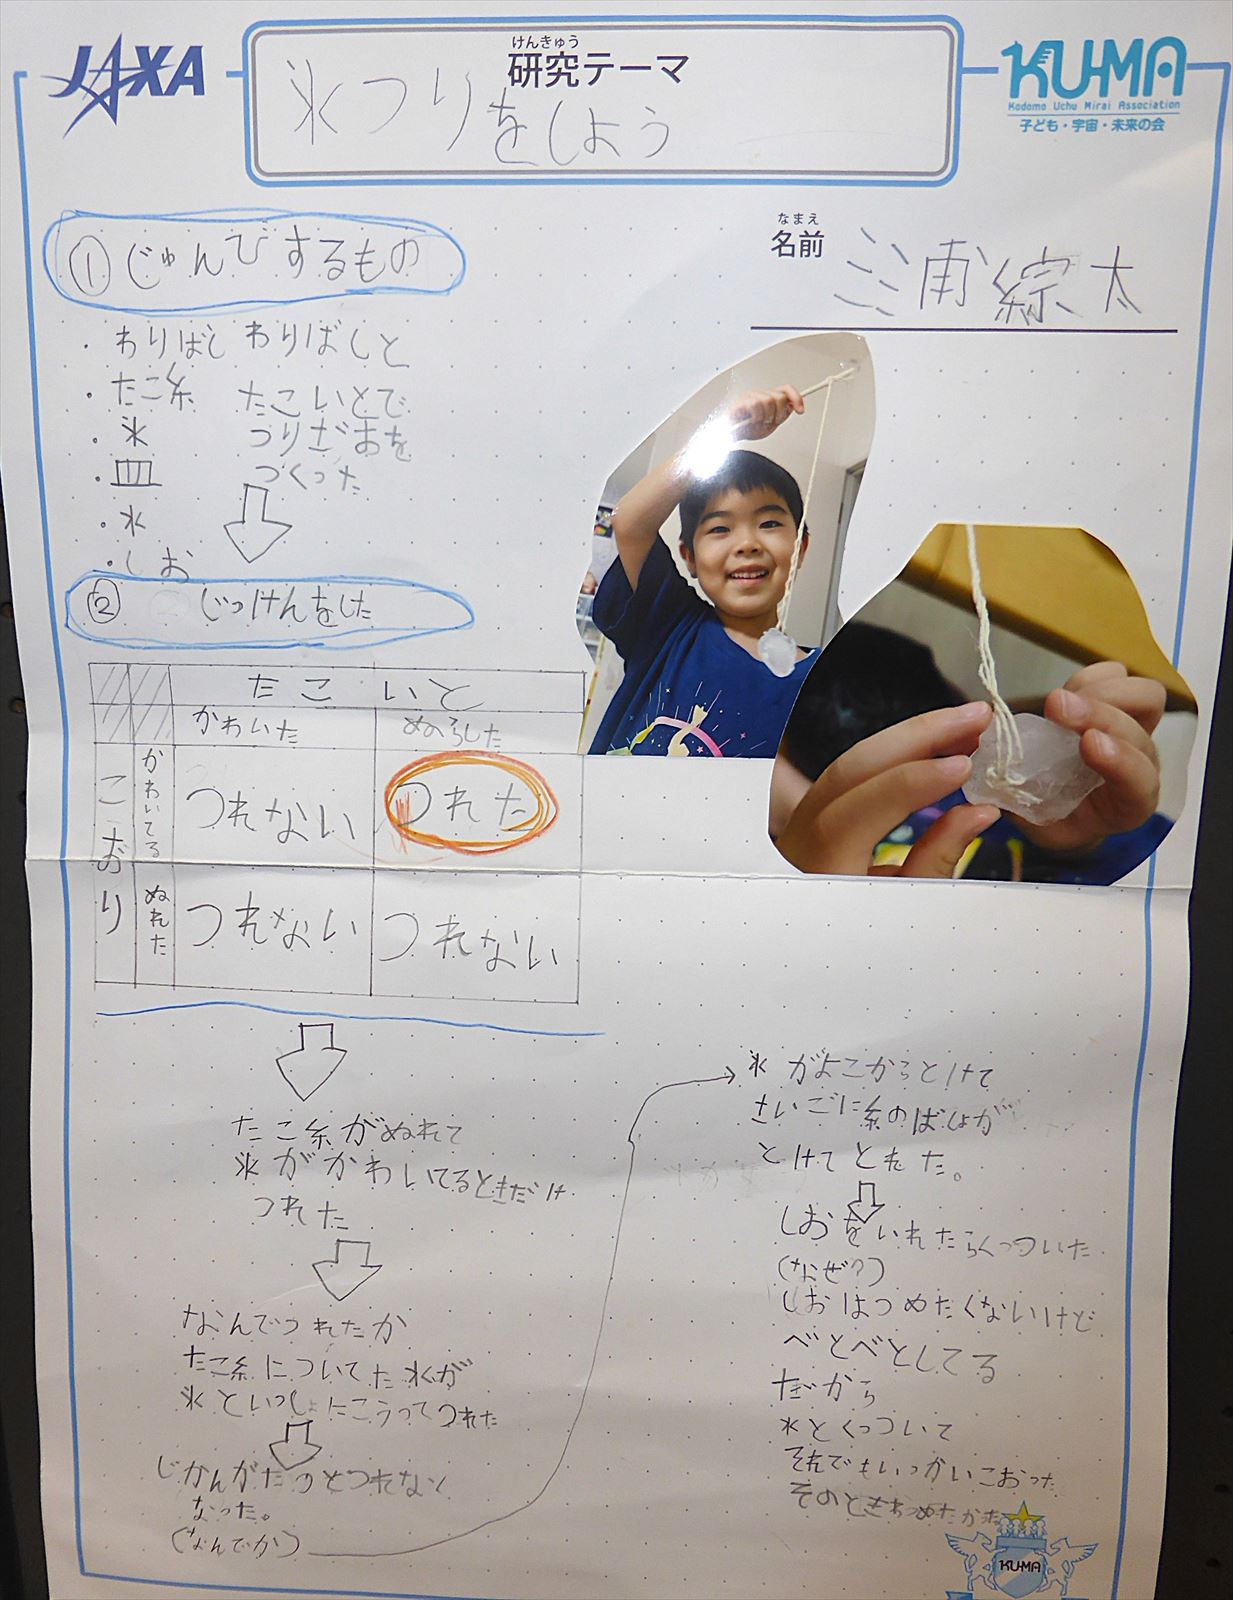 JAXA
けんきゅう
研究テーマ
氷つりをしよう
KUMA
Kodomo Uchu Mirai Association
子ども・宇宙・未来の会
なまえ
名前
三浦綜太
①じゅんびするもの
・わりばし
・たこ糸
・氷
・皿
・水
・しお
わりばしと
たこいとで
つりざおを
つくった
② じっけんをした
たこいと
かわいた
ぬらした
こおり
かわいてる
つれない
つれた
ぬれた
つれない
つれない
たこ糸がぬれて
氷がかわいてるときだけ
つれた
なんでつれたか
たこ糸についてた水が
氷といっしょにこうってつれた
じかんがたつとつれなく
なった。
(なんでか)
氷がよこからとけて
さいごに糸のばしょが
とけてともた。
しおをいれたらくっついた
(なぜ?)
しおはつめたくないけど
べとべとしてる
だから
氷とくっついて
それでもいっかいこおった
そのときもつめたかた
KUMA